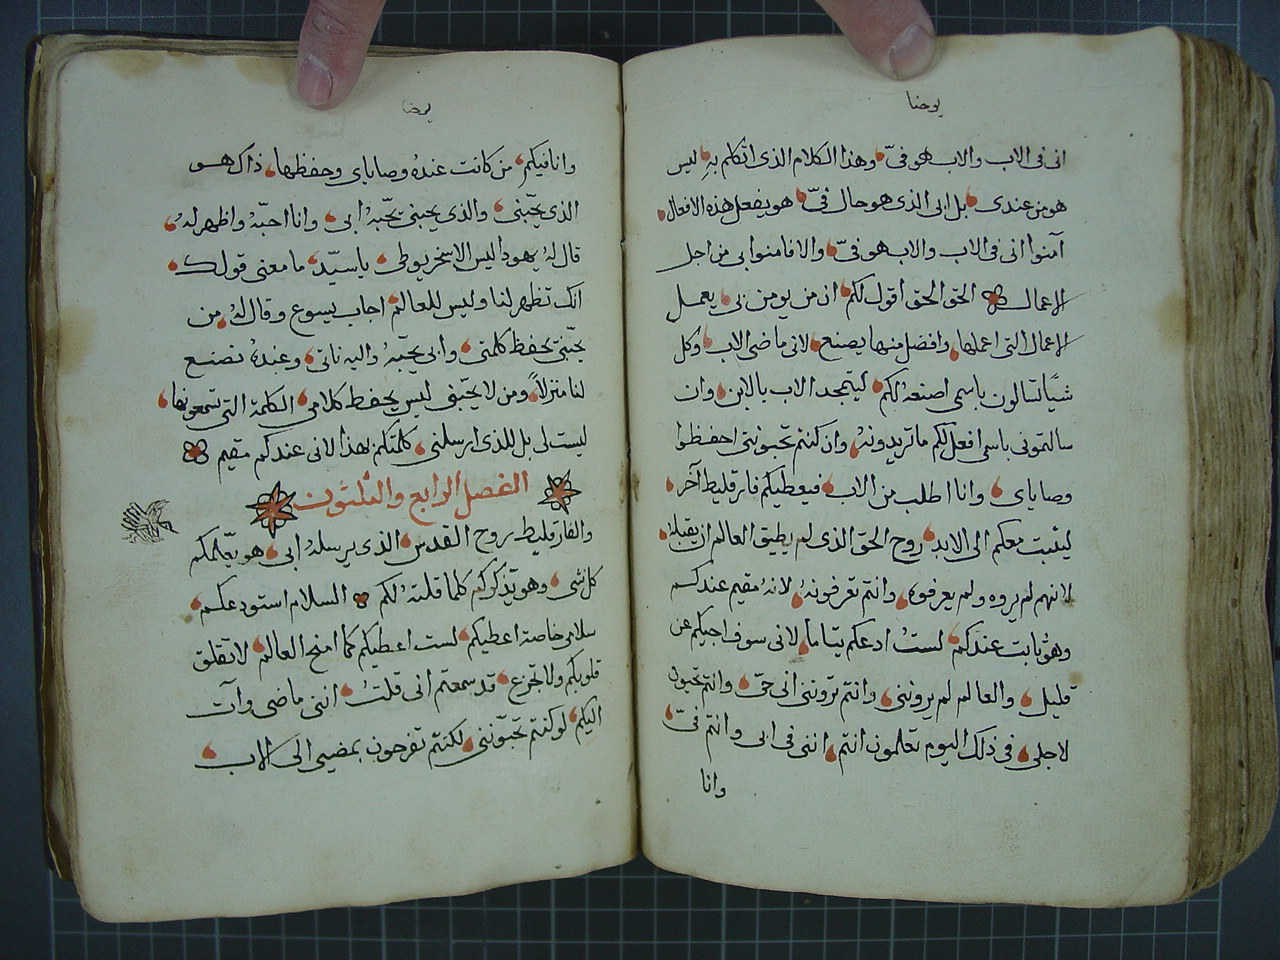 يوحنا
اني في الاب والاب هو فيّ وهذا الكلام الذي اتكلم به ليس
هو من عندي بل ابي الذي هو حال فيّ هو يفعل هذه الافعال
آمنوا اني في الاب والاب هو فيّ والا فامنوا بي من اجل
الاعمال الحق الحق أقول لكم ان من يومن بي يعمل
الاعمال التي اعملها وافضل منها يصنع لاني ماضى الاب وكل
شيًا تسالون باسمي اصنعه لكم ليتمجد الاب بالابن وان
سالتموني باسمي افعل لكم ما تريدونه وان كنتم تحبونني احفظوا
وصاياي وانا اطلب من الاب فيعطيكم فارقليط آخر
ليثبت معكم الى الابد روح الحق الذي لم يطيق العالم ان يقبله
لانهم لم يروه ولم يعرفوه وانتم تعرفونهُ لانهُ مقيم عندكم
وهو ثابت عندكم لستُ ادعكم يتاما لاني سوف اجيكم عن
قليل والعالم لم يرونني وانتم ترونني اني حيّ وانتم تحيون
لاجلي في ذلك اليوم تعلمون انتم انني في ابي وانتم فيّ
وانا
يوحنا
وانا فيكم من كانت عندهُ وصاياي وحفظها ذاك هو
الذي يحبّني والذي يحبني يحبّهُ ابي وانا احبّهُ واظهر لهُ
قال لهُ يهودا ليس الاسخريوطي يا سيّد ما معنى قولك
انك تظهر لنا وليس للعالم اجاب يسوع وقال لهُ من
يحبّني يحفظ كلمتي وابي يحبّهُ واليه ناتي وعندهُ نصنع
لنا منزلاً ومن لا يحبّني ليس يحفظ كلامي الكلمة التي تسمعونها
ليست لي بل للذي ارسلني كلمتكم بهذا لاني عندكم مقيم
الفصل الرابع والثلثون
والفارقليط روح القدس الذي يرسلهُ ابي هو يعّلمكم
كل شي وهو يذكركم كلما قلتهُ لكم السلام استودعكم
سلامي خاصة اعطيكم لست اعطيكم كما امنح العالم لا تقلق
قلوبكم ولا تجزع قد سمعتم اني قلتُ انني ماضى وآت
اليكم لو كنتم تحبّونني لكنتم تفرحون بمضيي الى الاب